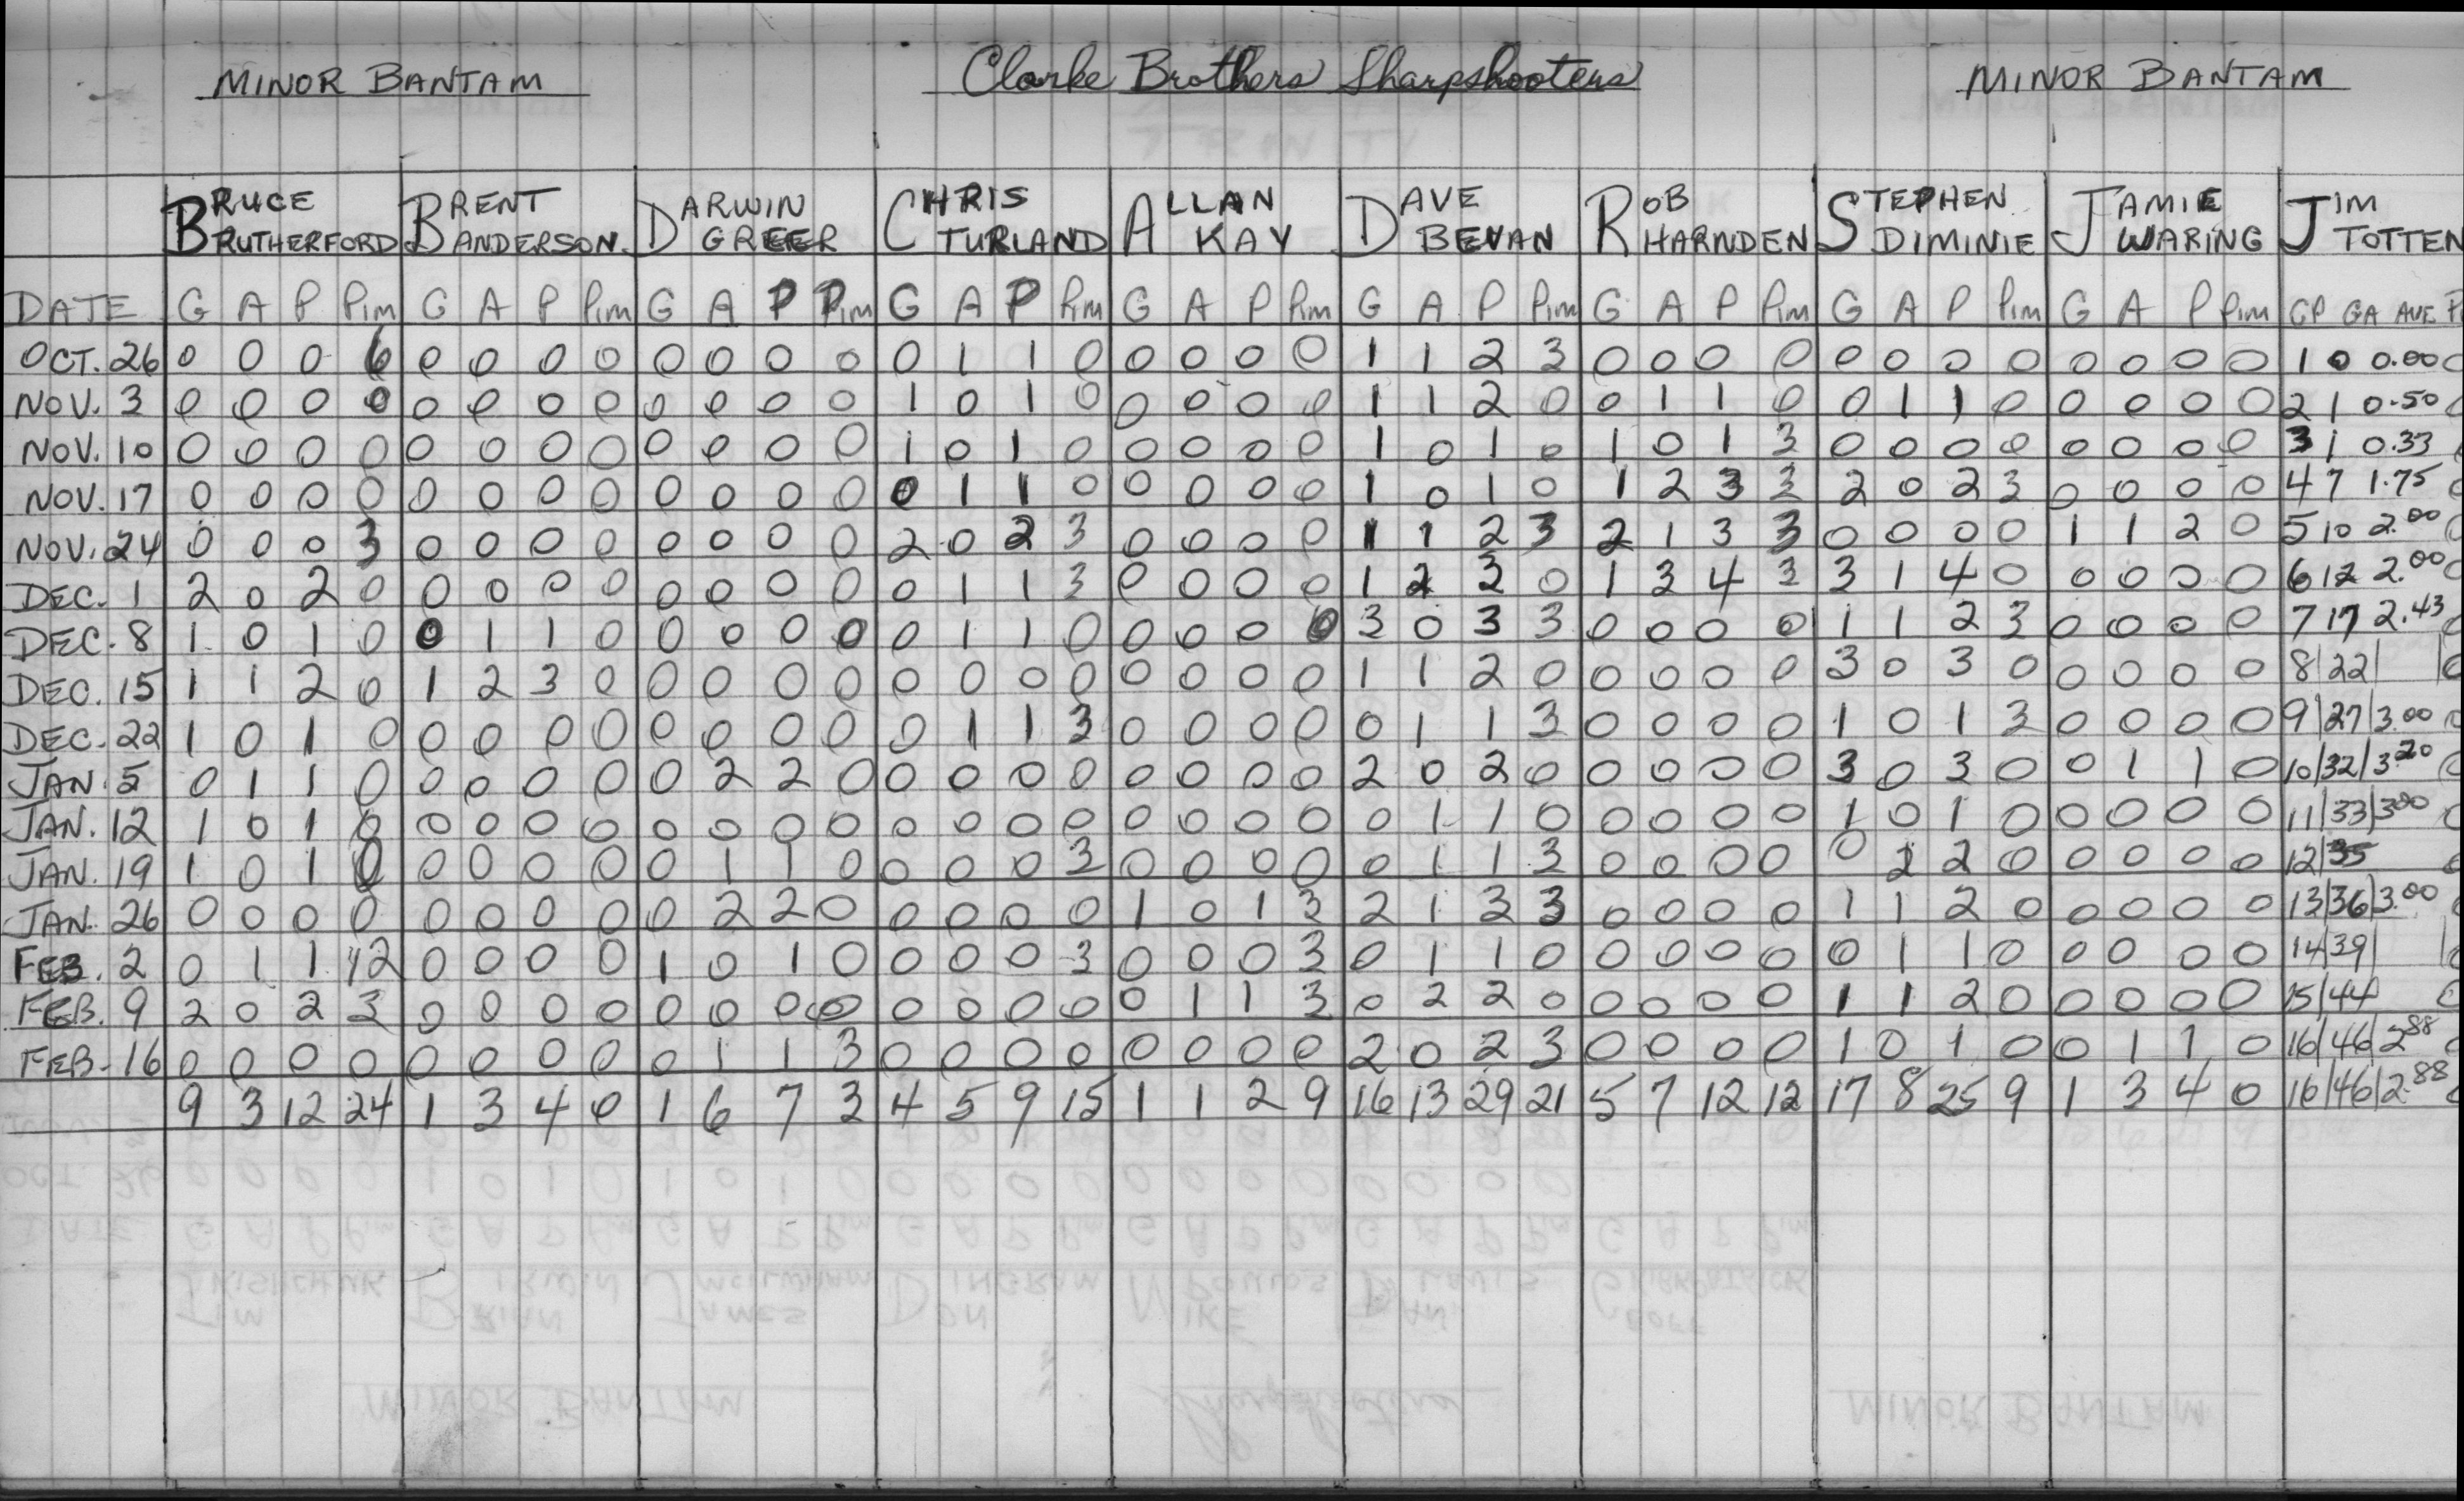 MINOR BANTAM Clarke Brothers Sharpshooters MINOR BANTAM
BRUCE RUTHERFORD BRENT ANDERSON DARWIN GREER CHRIS TURLAND ALLAN KAY DAVE BEVAN ROB HARNDEN STEPHEN DIMINIE JAMIE WARING JIM TOTTEN
DATE G A P Pim G A P Pim G A P Pim G A P Pim G A P Pim G A P Pim G A P Pim G A P Pim G A P Pim GP GA AVE
OCT. 26 0 0 0 6 0 0 0 0 0 0 0 0 0 1 1 0 0 0 0 0 1 1 2 3 0 0 0 0 0 0 0 0 0 0 0 0 1 0 0.00
NOV. 3 0 0 0 0 0 0 0 0 0 0 0 0 1 0 1 0 0 0 0 0 1 1 2 0 0 1 1 0 0 1 1 0 0 0 0 0 2 1 0.50
NOV. 10 0 0 0 0 0 0 0 0 0 0 0 0 1 0 1 0 0 0 0 0 1 0 1 0 1 0 1 3 0 0 0 0 0 0 0 0 3 1 0.33
NOV. 17 0 0 0 0 0 0 0 0 0 0 0 0 0 1 1 0 0 0 0 0 1 0 1 0 1 2 3 3 2 0 2 3 0 0 0 0 4 7 1.75
NOV. 24 0 0 0 3 0 0 0 0 0 0 0 0 2 0 2 3 0 0 0 0 1 1 2 3 2 1 3 3 0 0 0 0 1 1 2 0 5 10 2.00
DEC. 1 2 0 2 0 0 0 0 0 0 0 0 0 0 1 1 3 0 0 0 0 1 2 3 0 1 3 4 3 3 1 4 0 0 0 0 0 6 12 2.00
DEC. 8 1 0 1 0 0 1 1 0 0 0 0 0 0 1 1 0 0 0 0 0 3 0 3 3 0 0 0 0 1 1 2 3 0 0 0 0 7 17 2.43
DEC. 15 1 1 2 0 1 2 3 0 0 0 0 0 0 0 0 0 0 0 0 0 1 1 2 0 0 0 0 0 3 0 3 0 0 0 0 0 8|22|
DEC. 22 1 0 1 0 0 0 0 0 0 0 0 0 0 1 1 3 0 0 0 0 0 1 1 3 0 0 0 0 1 0 1 3 0 0 0 0 9|27|3.00
JAN. 5 0 1 1 0 0 0 0 0 0 2 2 0 0 0 0 0 0 0 0 0 2 0 2 0 0 0 0 0 3 0 3 0 0 1 1 0 10|32|3.20
JAN. 12 1 0 1 0 0 0 0 0 0 0 0 0 0 0 0 0 0 0 0 0 0 1 1 0 0 0 0 0 1 0 1 0 0 0 0 0 11|33|3.00
JAN. 19 1 0 1 0 0 0 0 0 0 1 1 0 0 0 0 3 0 0 0 0 0 1 1 3 0 0 0 0 0 2 2 0 0 0 0 0 12|35
JAN. 26 0 0 0 0 0 0 0 0 0 2 2 0 0 0 0 0 1 0 1 3 2 1 3 3 0 0 0 0 1 1 2 0 0 0 0 0 13|36|3.00
FEB. 2 0 1 1 12 0 0 0 0 1 0 1 0 0 0 0 3 0 0 0 3 0 1 1 0 0 0 0 0 0 1 1 0 0 0 0 0 14|39|
FEB. 9 2 0 2 3 0 0 0 0 0 0 0 0 0 0 0 0 0 1 1 3 0 2 2 0 0 0 0 0 1 1 2 0 0 0 0 0 15|44
FEB. 16 0 0 0 0 0 0 0 0 0 1 1 3 0 0 0 0 0 0 0 0 2 0 2 3 0 0 0 0 1 0 1 0 0 1 1 0 16|46|2.88
9 3 12 24 1 3 4 0 1 6 7 3 4 5 9 15 1 1 2 9 16 13 29 21 5 7 12 12 17 8 25 9 1 3 4 0 16|46|2.88